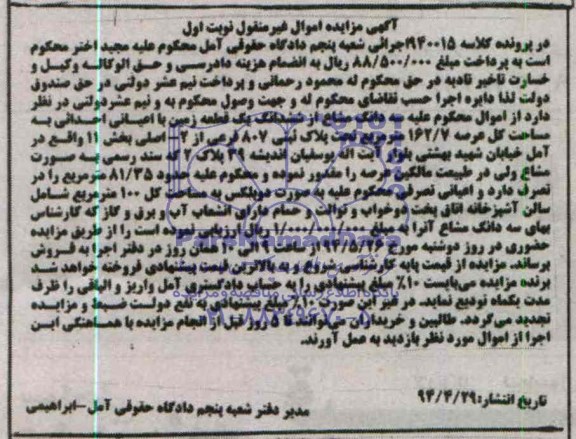 آگهی مزایده اموال غیرمنقول نوبت اول
در پرونده کلاسه ۹۴۰۰۱۵اجرائی شعبه پنجم دادگاه حقوقی آمل محکوم علیه مجید اختر محکوم
است به پرداخت مبلغ ۸۸/۵۰۰/۰۰۰ ریال به انضمام هزینه دادرسی و حق الوکاله وکیل و
خسارت تاخیر تادیه در حق محکوم له محمود رحمانی و پرداخت نیم عشر دولتی در حق صندوق
دولت لذا دایره اجرا حسب تقاضای محکوم له و جهت وصول محکوم به و نیم عشردولتی در نظر
دارد از اموال محکوم علیه سه دانگ مشاع از ششدانگ یک قطعه زمین با اعیانی احداثی به
مساحت کل عرصه ۱۶۲/۷ مترمربع تحت پلاک ثبتی ۸۰۷ فرعی از ۲ اصلی بخش ۱۱ واقع در
آمل خیابان شهید بهشتی بلوار آیت اله یوسفیان اندیشه ۳۹ پلاک ۷ که سند رسمی به صورت
مشاع ولی در طبیعت مالکین عرصه را مفروز نموده و محکوم علیه حدود ۸۱/۳۵ مترمربع را در
تصرف دارد و اعیانی تصرفی محکوم علیه به صورت دوبلکس به مساحت کل ۱۰۰ مترمربع شامل
سالن آشپزخانه اتاق پخت دوخواب و توالت و حمام دارای انشعاب آب و برق و گاز که کارشناس
بهای سه دانگ مشاع آنرا به مبلغ ریال ارزیابی نموده است را از طریق مزایده
حضوری در روز دوشنبه مورخ ۹۴/۵/۲۶ ساعت ۹ الی همان روز در دفتر اجرا به فروش
برساند. مزایده از قیمت پایه کارشناسی شروع و به بالاترین قیمت پیشنهادی فروخته خواهد شد
برنده مزایده می‌بایست ۱۰٪ مبلغ پیشنهادی را به حساب دادگستری آمل واریز و الباقی را ظرف
مدت یکماه تودیع نماید. در غیر این صورت ۱۰٪ مبلغ پیشنهادی به نفع دولت ضبط و مزایده
تجدید می‌گردد. طالبین و خریداران می‌توانند تا ۵ روز قبل از انجام مزایده با هماهنگی این
اجرا از اموال مورد نظر بازدید به عمل آورند.
تاریخ انتشار:۹۴/۴/۲۹
مدیر دفتر شعبه پنجم دادگاه حقوقی آمل-ابراهیمی